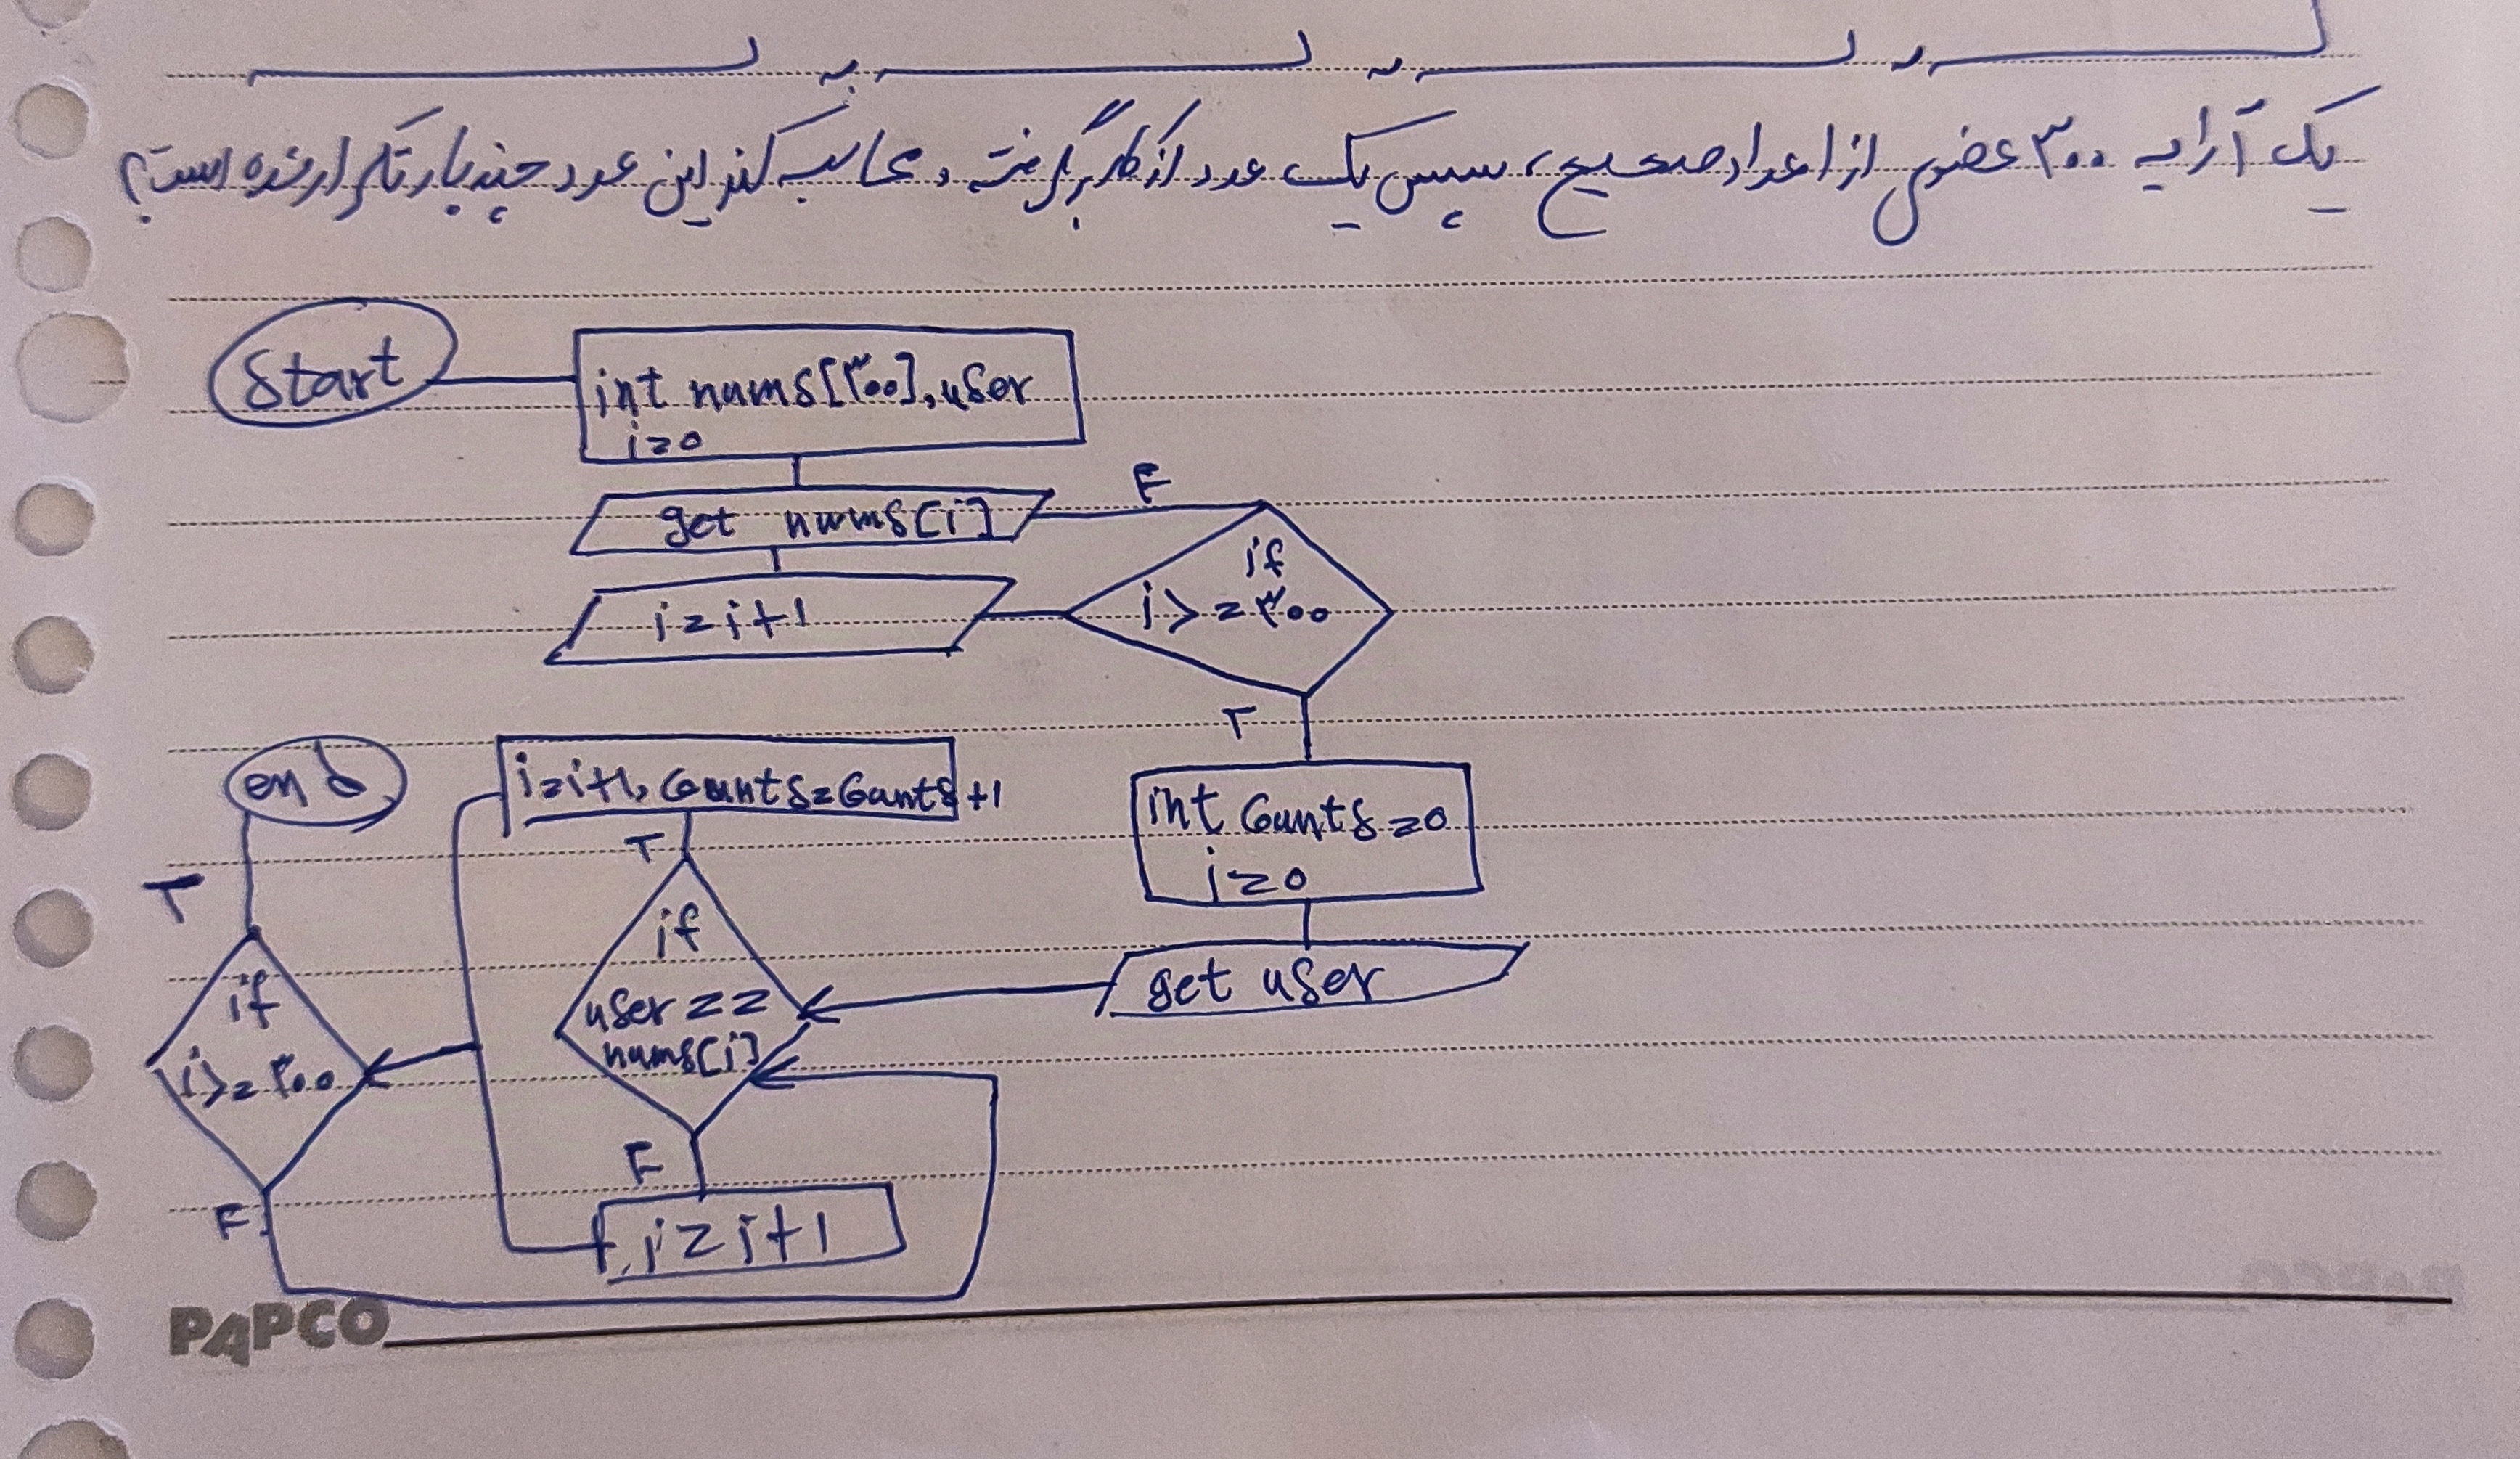 یک آرایه ۳۰۰ عضوی از اعداد صحیح، سپس یک عدد از کاربر گرفته و محاسبه کند این عدد چند بار تکرار شده است؟
Start
int nums[۳۰۰], user
i=0
get nums[i]
F
i=i+1
if
i>=۳۰۰
T
int Counts=0
i=0
get user
if
user==
nums[i]
T
i=i+1, Counts=Counts+1
F
i=i+1
if
i>=۳۰۰
T
end
F
PAPCO